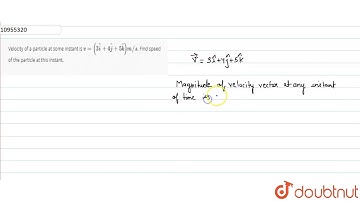 10955320
Velocity of a particle at some instant is v = (3î + 4ĵ + 5k̂) m/s. Find speed
of the particle at this instant.
V⃗ = 3î+4ĵ+5k̂
Magnitude of velocity vector at any instant
of time is
doubtnut